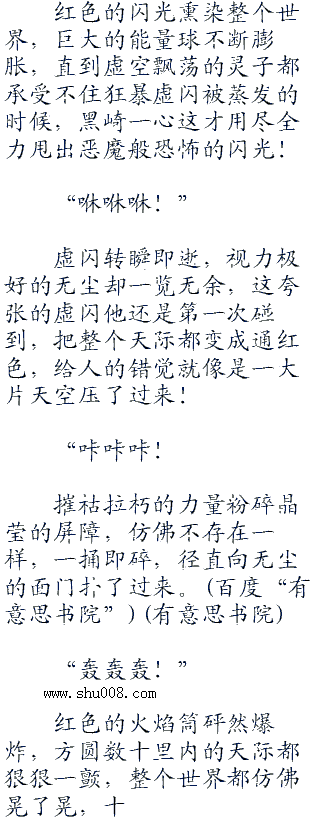 红色的闪光熏染整个世
界，巨大的能量球不断膨
胀，直到虚空飘荡的灵子都
承受不住狂暴虚闪被蒸发的
时候，黑崎一心这才用尽全
力甩出恶魔般恐怖的闪光！
“咻咻咻！”
虚闪转瞬即逝，视力极
好的无尘却一览无余，这夸
张的虚闪他还是第一次碰
到，把整个天际都变成通红
色，给人的错觉就像是一大
片天空压了过来！
“咔咔咔！
摧祜拉朽的力量粉碎晶
莹的屏障，仿佛不存在一
样，一捅即碎，径直向无尘
的面门扑了过来。(百度“有
意思书院”)(有意思书院)
“轰轰轰！”
www.shu008.com
红色的火焰筒砰然爆
炸，方圆数十里内的天际都
狠狠一颤，整个世界都仿佛
晃了晃，十